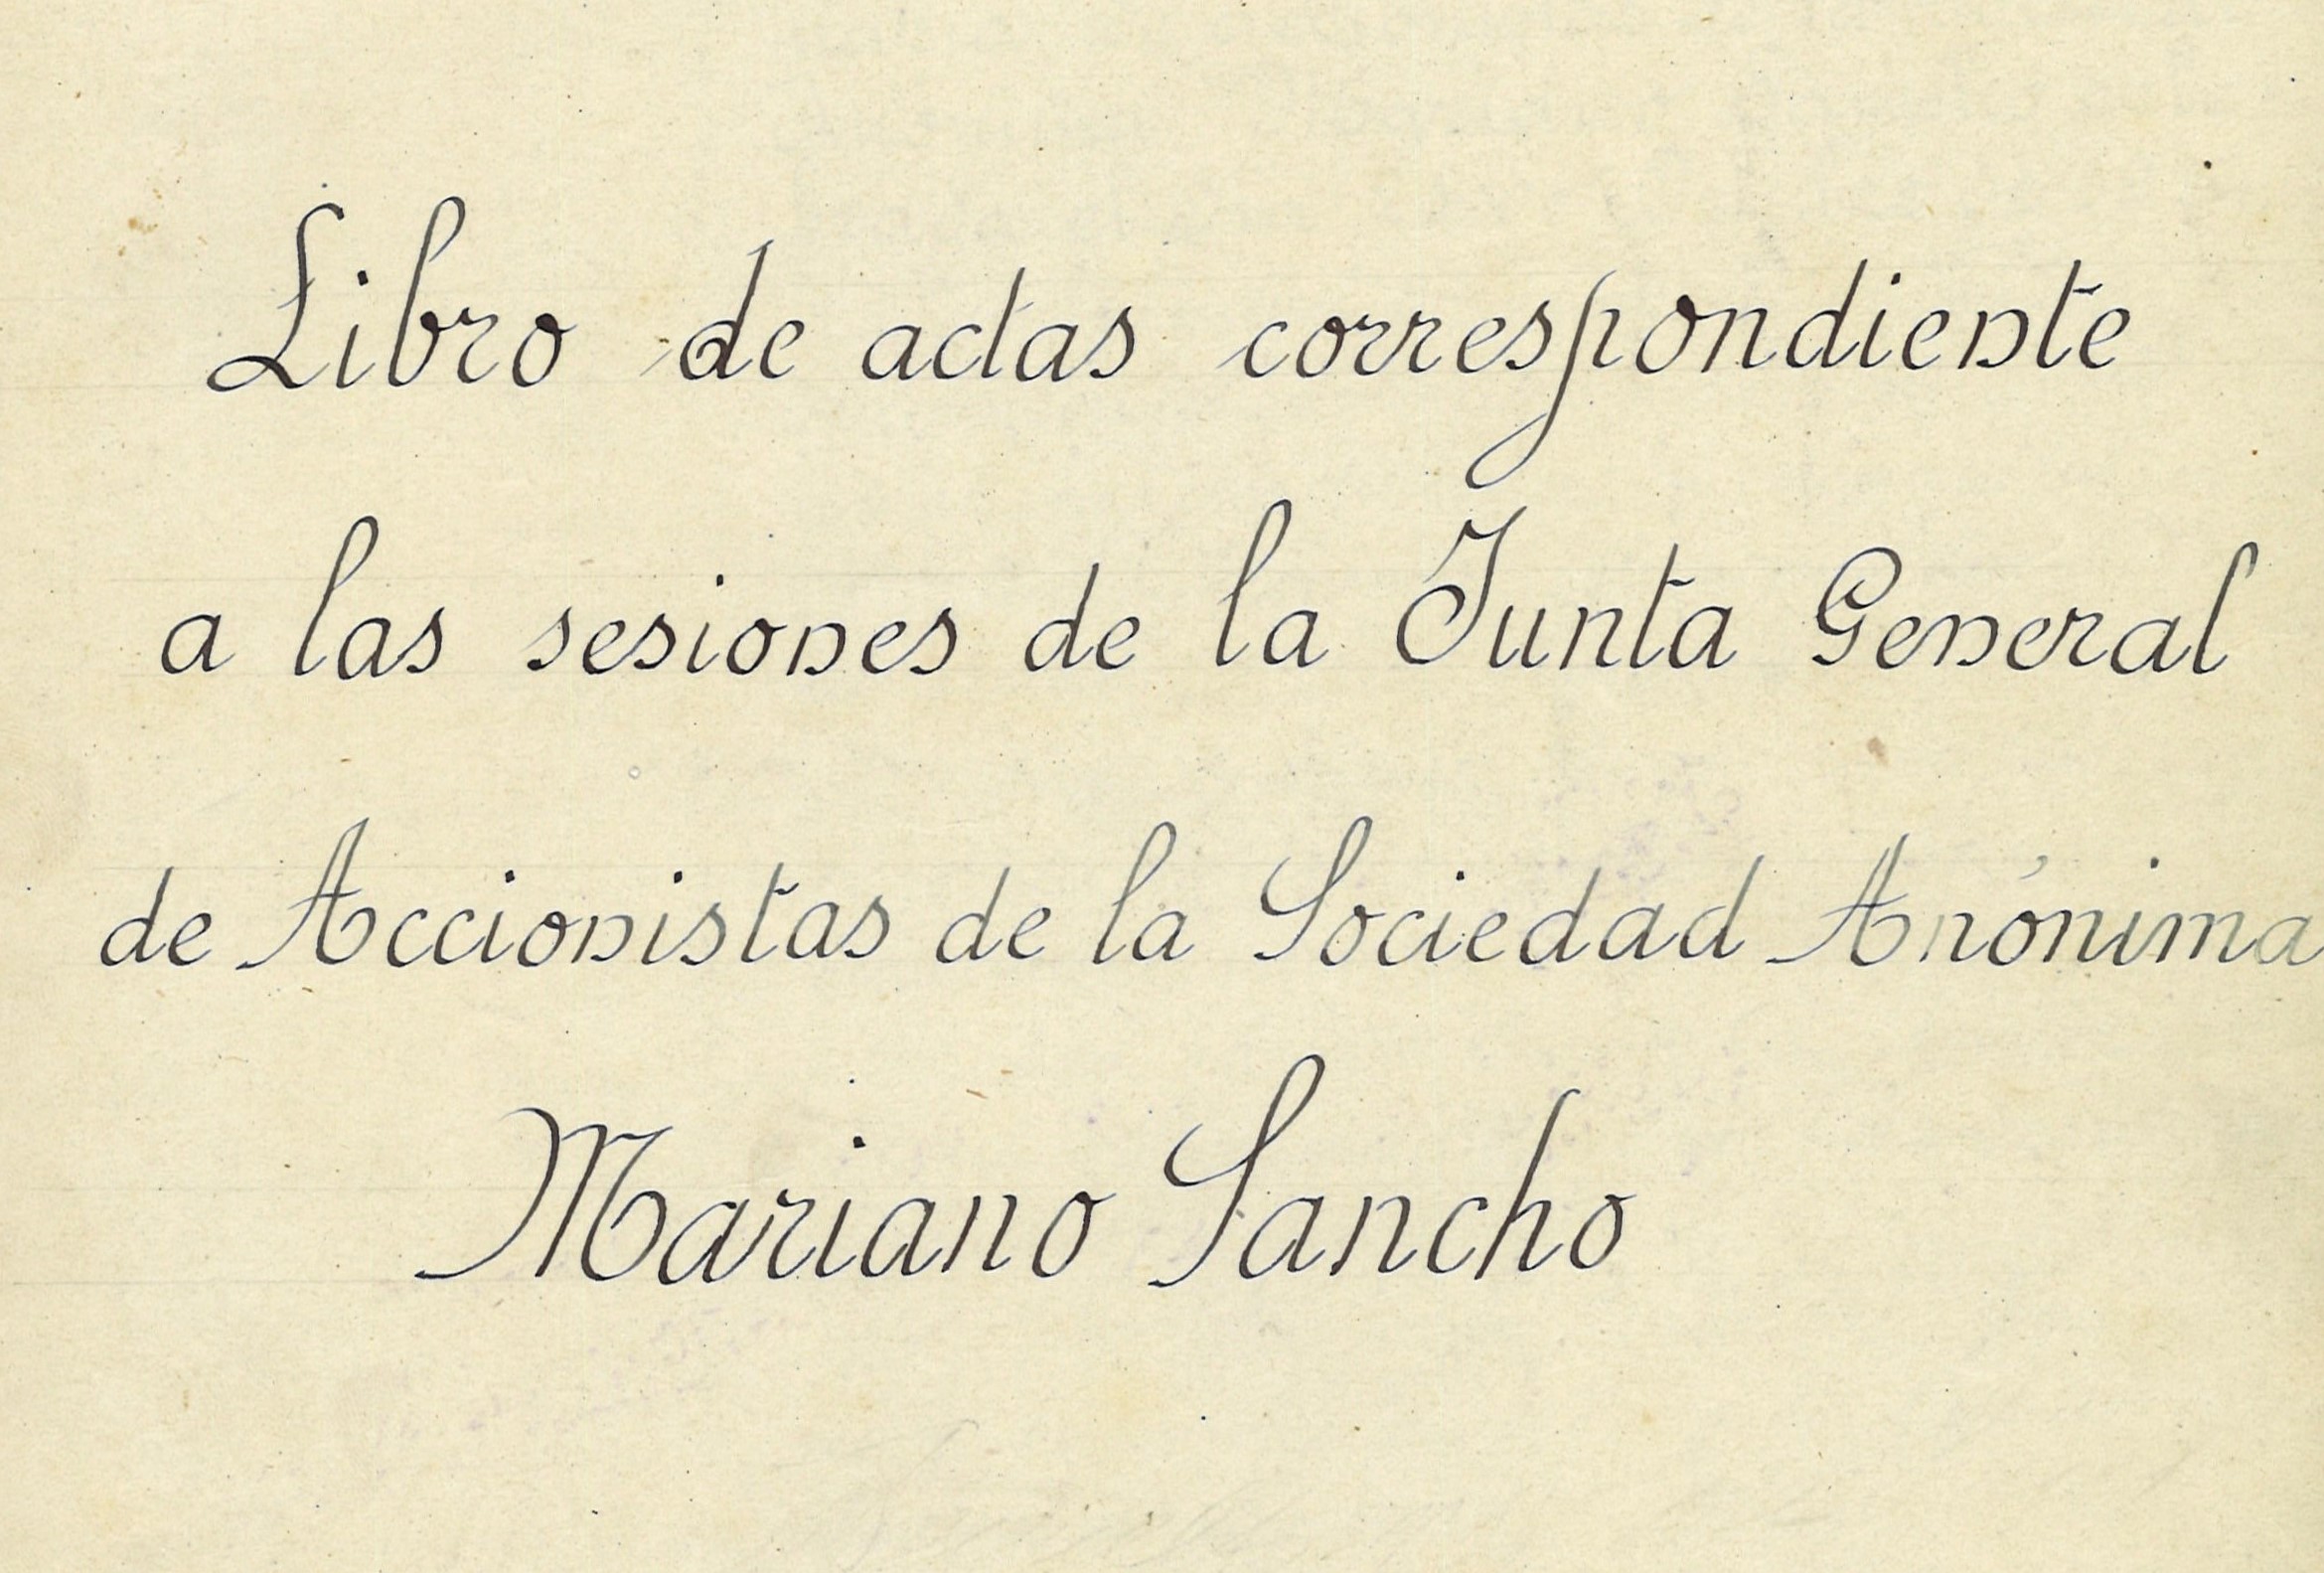 Libro de actas correspondiente
a las sesiones de la Junta General
de Accionistas de la Sociedad Anónima
Mariano Sancho